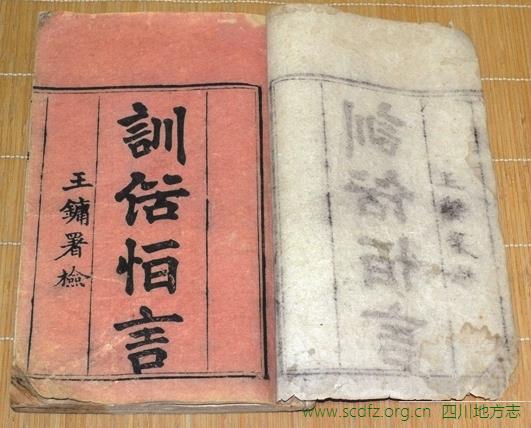 訓俗恒言
王鏞署檢
www.scdfz.org.cn 四川地方志